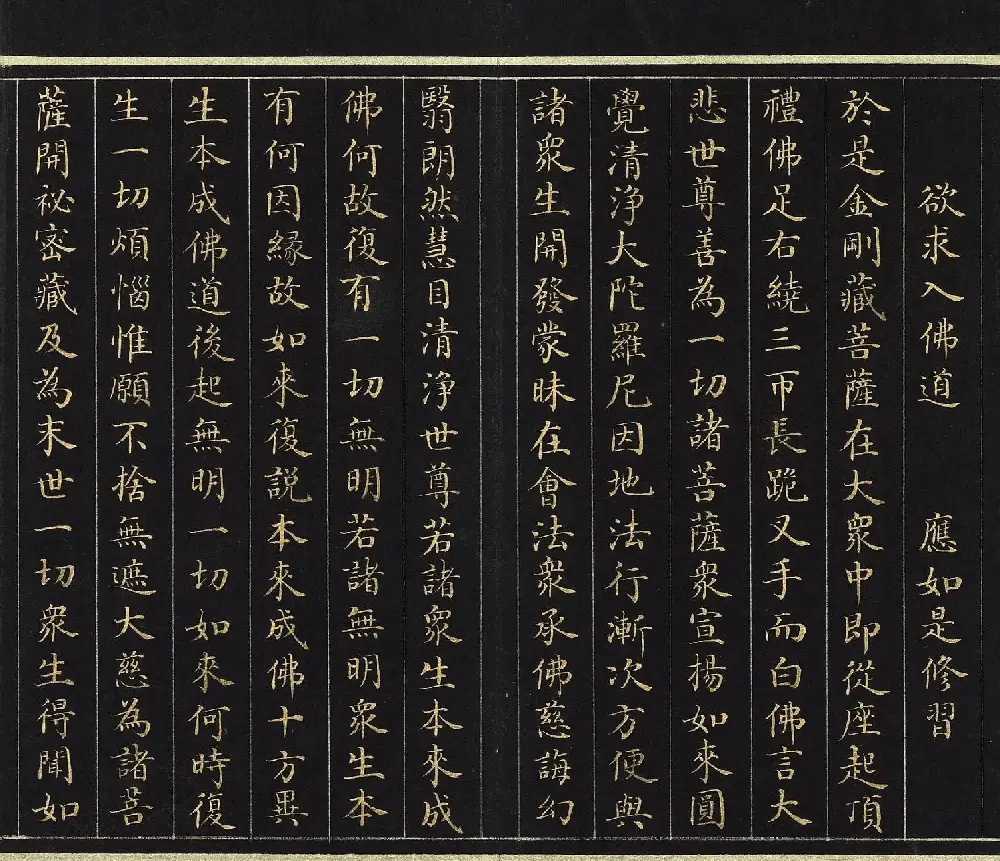 欲求入佛道　應如是修習
於是金剛藏菩薩在大衆中即從座起頂
禮佛足右繞三帀長跪叉手而白佛言大
悲世尊善為一切諸菩薩衆宣揚如來圓
覺清淨大陀羅尼因地法行漸次方便與
諸衆生開發蒙昧在會法衆承佛慈誨幻
翳朗然慧目清淨世尊若諸衆生本來成
佛何故復有一切無明若諸無明衆生本
有何因緣故如來復説本來成佛十方異
生本成佛道後起無明一切如來何時復
生一切煩惱惟願不捨無遮大慈為諸菩
薩開祕密藏及為末世一切衆生得聞如